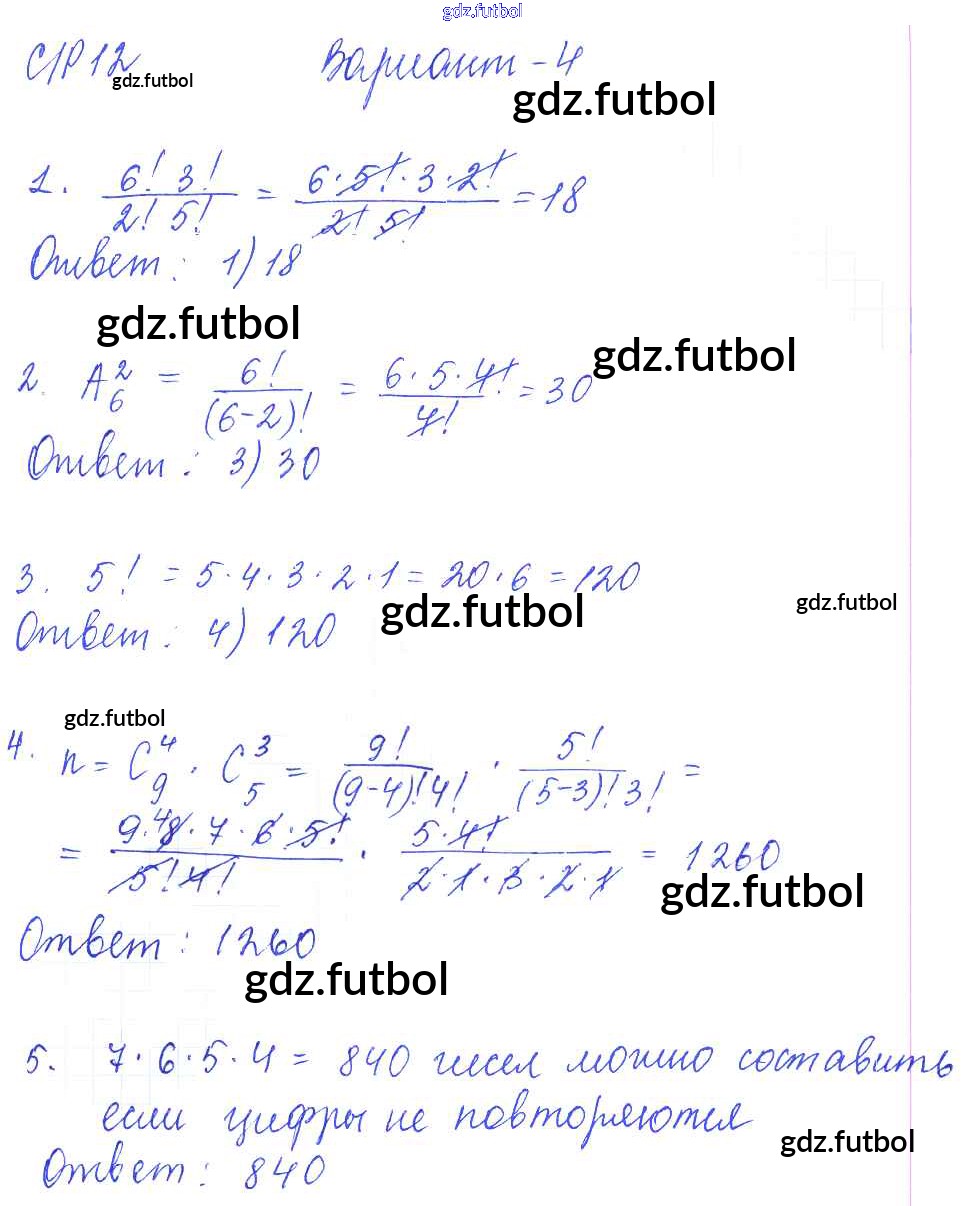 gdz.futbol
С/Р 12 Вариант - 4
gdz.futbol gdz.futbol
1. 6! 3! / 2! 5! = 6·5!·3·2! / 2! 5! = 18
Ответ: 1) 18
gdz.futbol gdz.futbol
2. A₆² = 6! / (6-2)! = 6·5·4! / 4! = 30
Ответ: 3) 30
3. 5! = 5·4·3·2·1 = 20·6 = 120
gdz.futbol gdz.futbol
Ответ: 4) 120
gdz.futbol
4. n = C₉⁴ · C₅³ = 9! / (9-4)! 4! · 5! / (5-3)! 3! =
= 9·⁴8·7·6·5! / 5! 4! · 5·4! / 2·1·3·2·1 = 1260
gdz.futbol
Ответ: 1260
gdz.futbol
5. 7·6·5·4 = 840 чисел можно составить
если цифры не повторяются
gdz.futbol
Ответ: 840